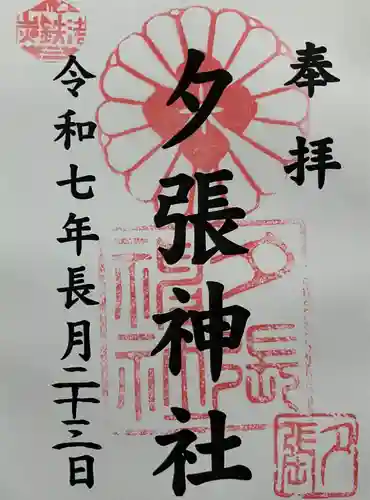 奉拝
夕張神社
令和七年長月二十三日
夕張